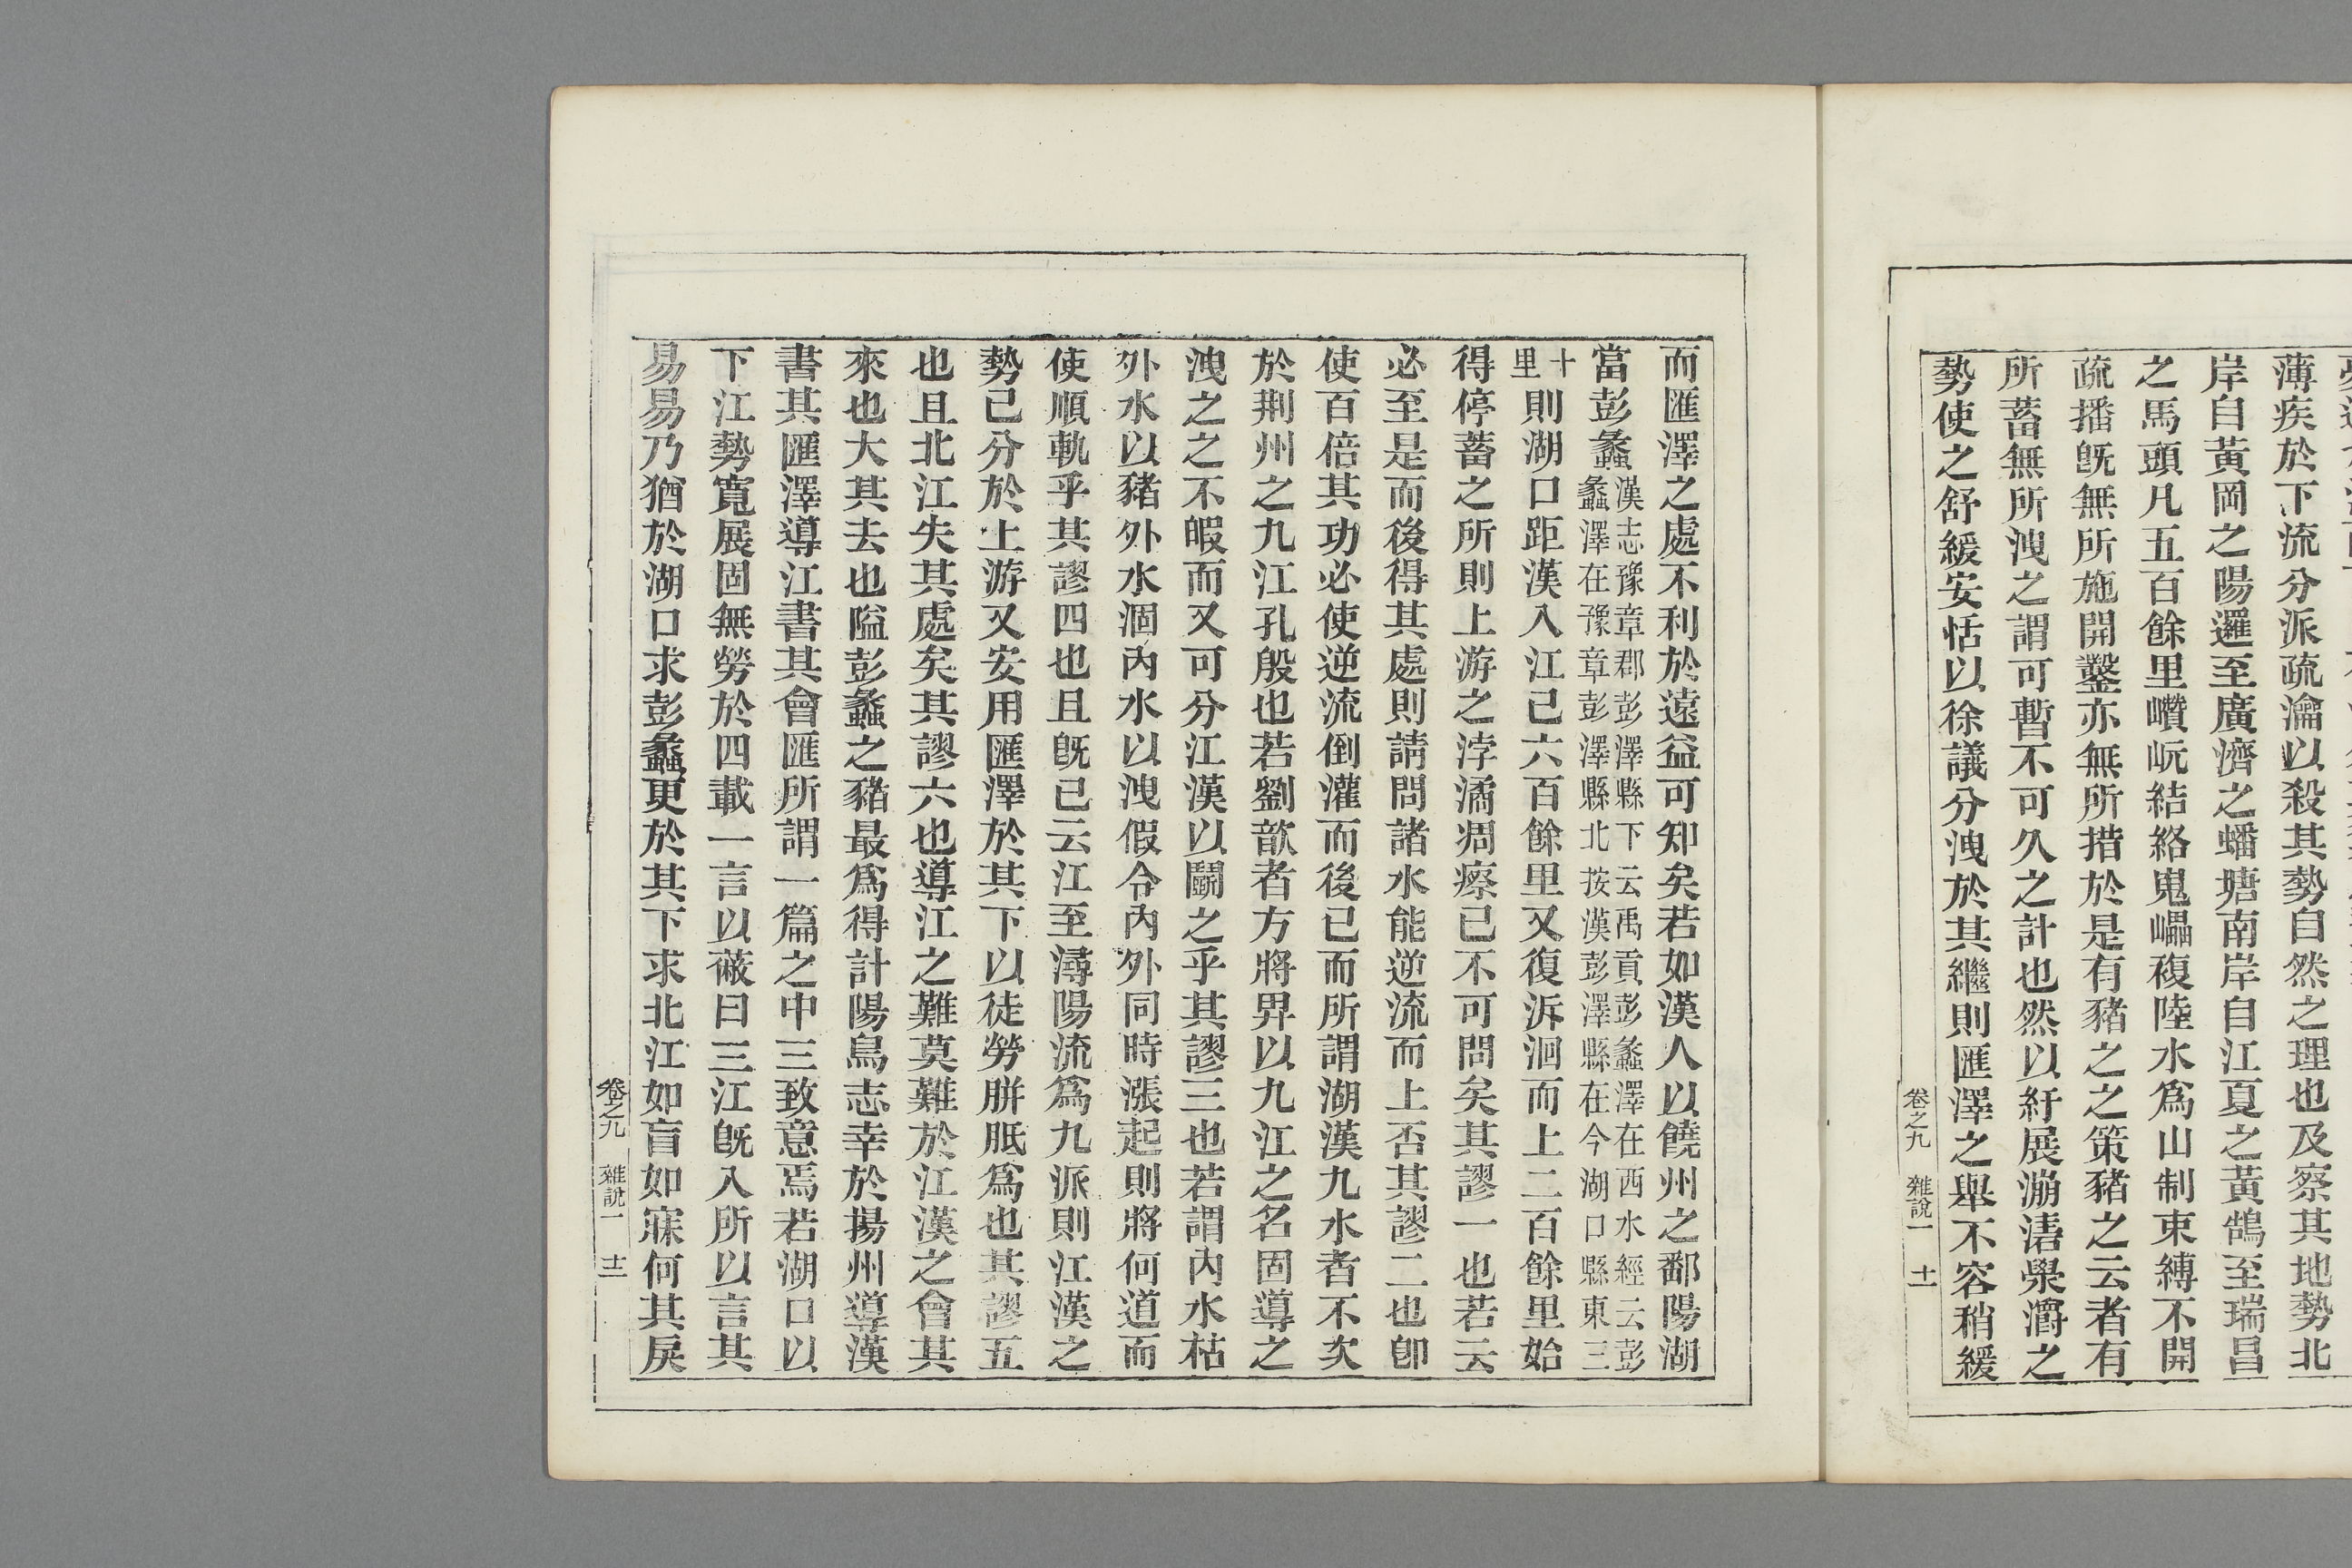 薄疾於下流分派疏瀹以殺其勢自然之理也及察其地勢北
岸自黃岡之陽邏至廣濟之蟠塘南岸自江夏之黃鵠至瑞昌
之馬頭凡五百餘里巑岏結絡嵬巕複陸水爲山制束縛不開
疏播旣無所施開鑿亦無所措於是有豬之之策豬之云者有
所蓄無所洩之謂可暫不可久之計也然以紓展㴸灂之
勢使之舒緩安恬以徐議分洩於其繼則匯澤之舉不容稍緩
卷之九 雜說一 十一
而匯澤之處不利於遠益可知矣若如漢人以饒州之鄱陽湖
當彭蠡漢志豫章郡彭澤縣下云禹貢彭蠡澤在西水經云彭
蠡澤在豫章彭澤縣北按漢彭澤縣在今湖口縣東三
十里則湖口距漢入江已六百餘里又復泝洄而上二百餘里始
得停蓄之所則上游之浡潏痌瘝已不可問矣其謬一也若云
必至是而後得其處則請問諸水能逆流而上否其謬二也卽
使百倍其功必使逆流倒灌而後已而所謂湖漢九水者不次
於荆州之九江孔殷也若劉歆者方將畀以九江之名固導之
洩之之不暇而又可分江漢以鬭之乎其謬三也若謂內水枯
外水以豬外水涸內水以洩假令內外同時漲起則將何道而
使順軌乎其謬四也且旣已云江至潯陽流爲九派則江漢之
勢已分於上游又安用匯澤於其下以徒勞胼胝爲也其謬五
也且北江失其處矣其謬六也導江之難莫難於江漢之會其
來也大其去也隘彭蠡之豬最爲得計陽鳥志幸於揚州導漢
書其匯澤導江書其會匯所謂一篇之中三致意焉若湖口以
下江勢寬展固無勞於四載一言以蔽曰三江旣入所以言其
易易乃猶於湖口求彭蠡更於其下求北江如盲如寐何其戾
卷之九 雜說一 十二